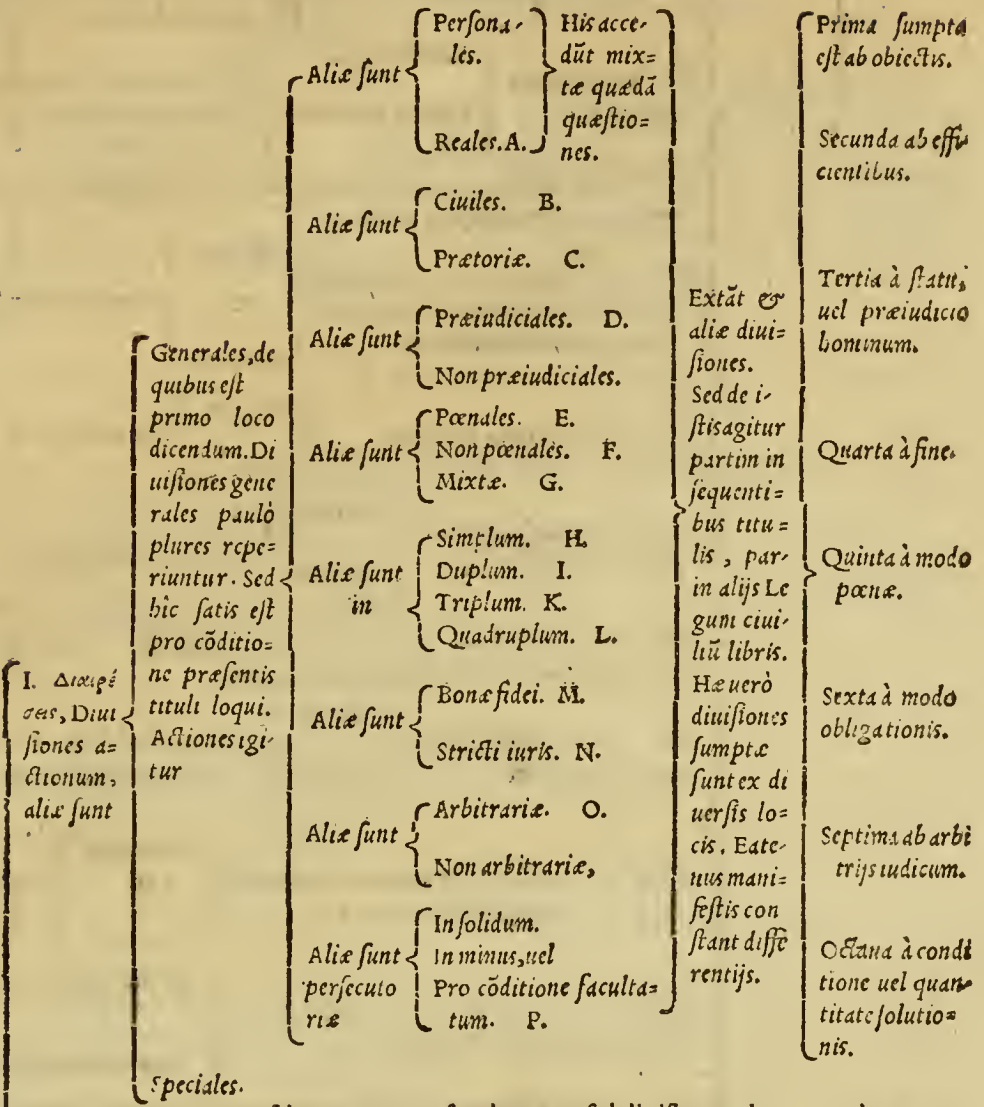 I. Διαιρέ
σεις, Diui
ſiones a=
ctionum,
aliæ ſunt
Generales, de
quibus eſt
primo loco
dicendum. Di
uiſiones gene
rales paulò
plures repe=
riuntur. Sed
hîc ſatis eſt
pro cõditio=
ne præſentis
tituli loqui.
Actiones igi=
tur
Aliæ ſunt
Perſona=
les.
Reales. A.
His acce=
dũt mix=
tæ quædã
quæſtio=
nes.
Aliæ ſunt
Ciuiles. B.
Prætoriæ. C.
Aliæ ſunt
Præiudiciales. D.
Non præiudiciales.
Aliæ ſunt
Pœnales. E.
Non pœnales. F.
Mixtæ. G.
Aliæ ſunt
in
Simplum. H.
Duplum. I.
Triplum. K.
Quadruplum. L.
Aliæ ſunt
Bonæ fidei. M.
Stricti iuris. N.
Aliæ ſunt
Arbitrariæ. O.
Non arbitrariæ,
Aliæ ſunt
perſecuto
riæ
In ſolidum.
In minus, uel
Pro cõditione faculta=
tum. P.
Extãt &
aliæ diui=
ſiones.
Sed de i=
ſtis agitur
partim in
ſequenti=
bus titu=
lis, par=
in alijs Le
gum ciui=
liũ libris.
Hæ uerò
diuiſiones
ſumptæ
ſunt ex di
uerſis lo=
cis. Eate=
nus mani=
feſtis con
ſtant diffe
rentijs.
Prima ſumpta
eſt ab obiectis.
Secunda ab effi=
cientibus.
Tertia à ſtatu,
uel præiudicio
hominum.
Quarta à fine.
Quinta à modo
pœnæ.
Sexta à modo
obligationis.
Septima ab arbi
trijs iudicum.
Octaua à condi
tione uel quan=
titate ſolutio=
nis.
Speciales.